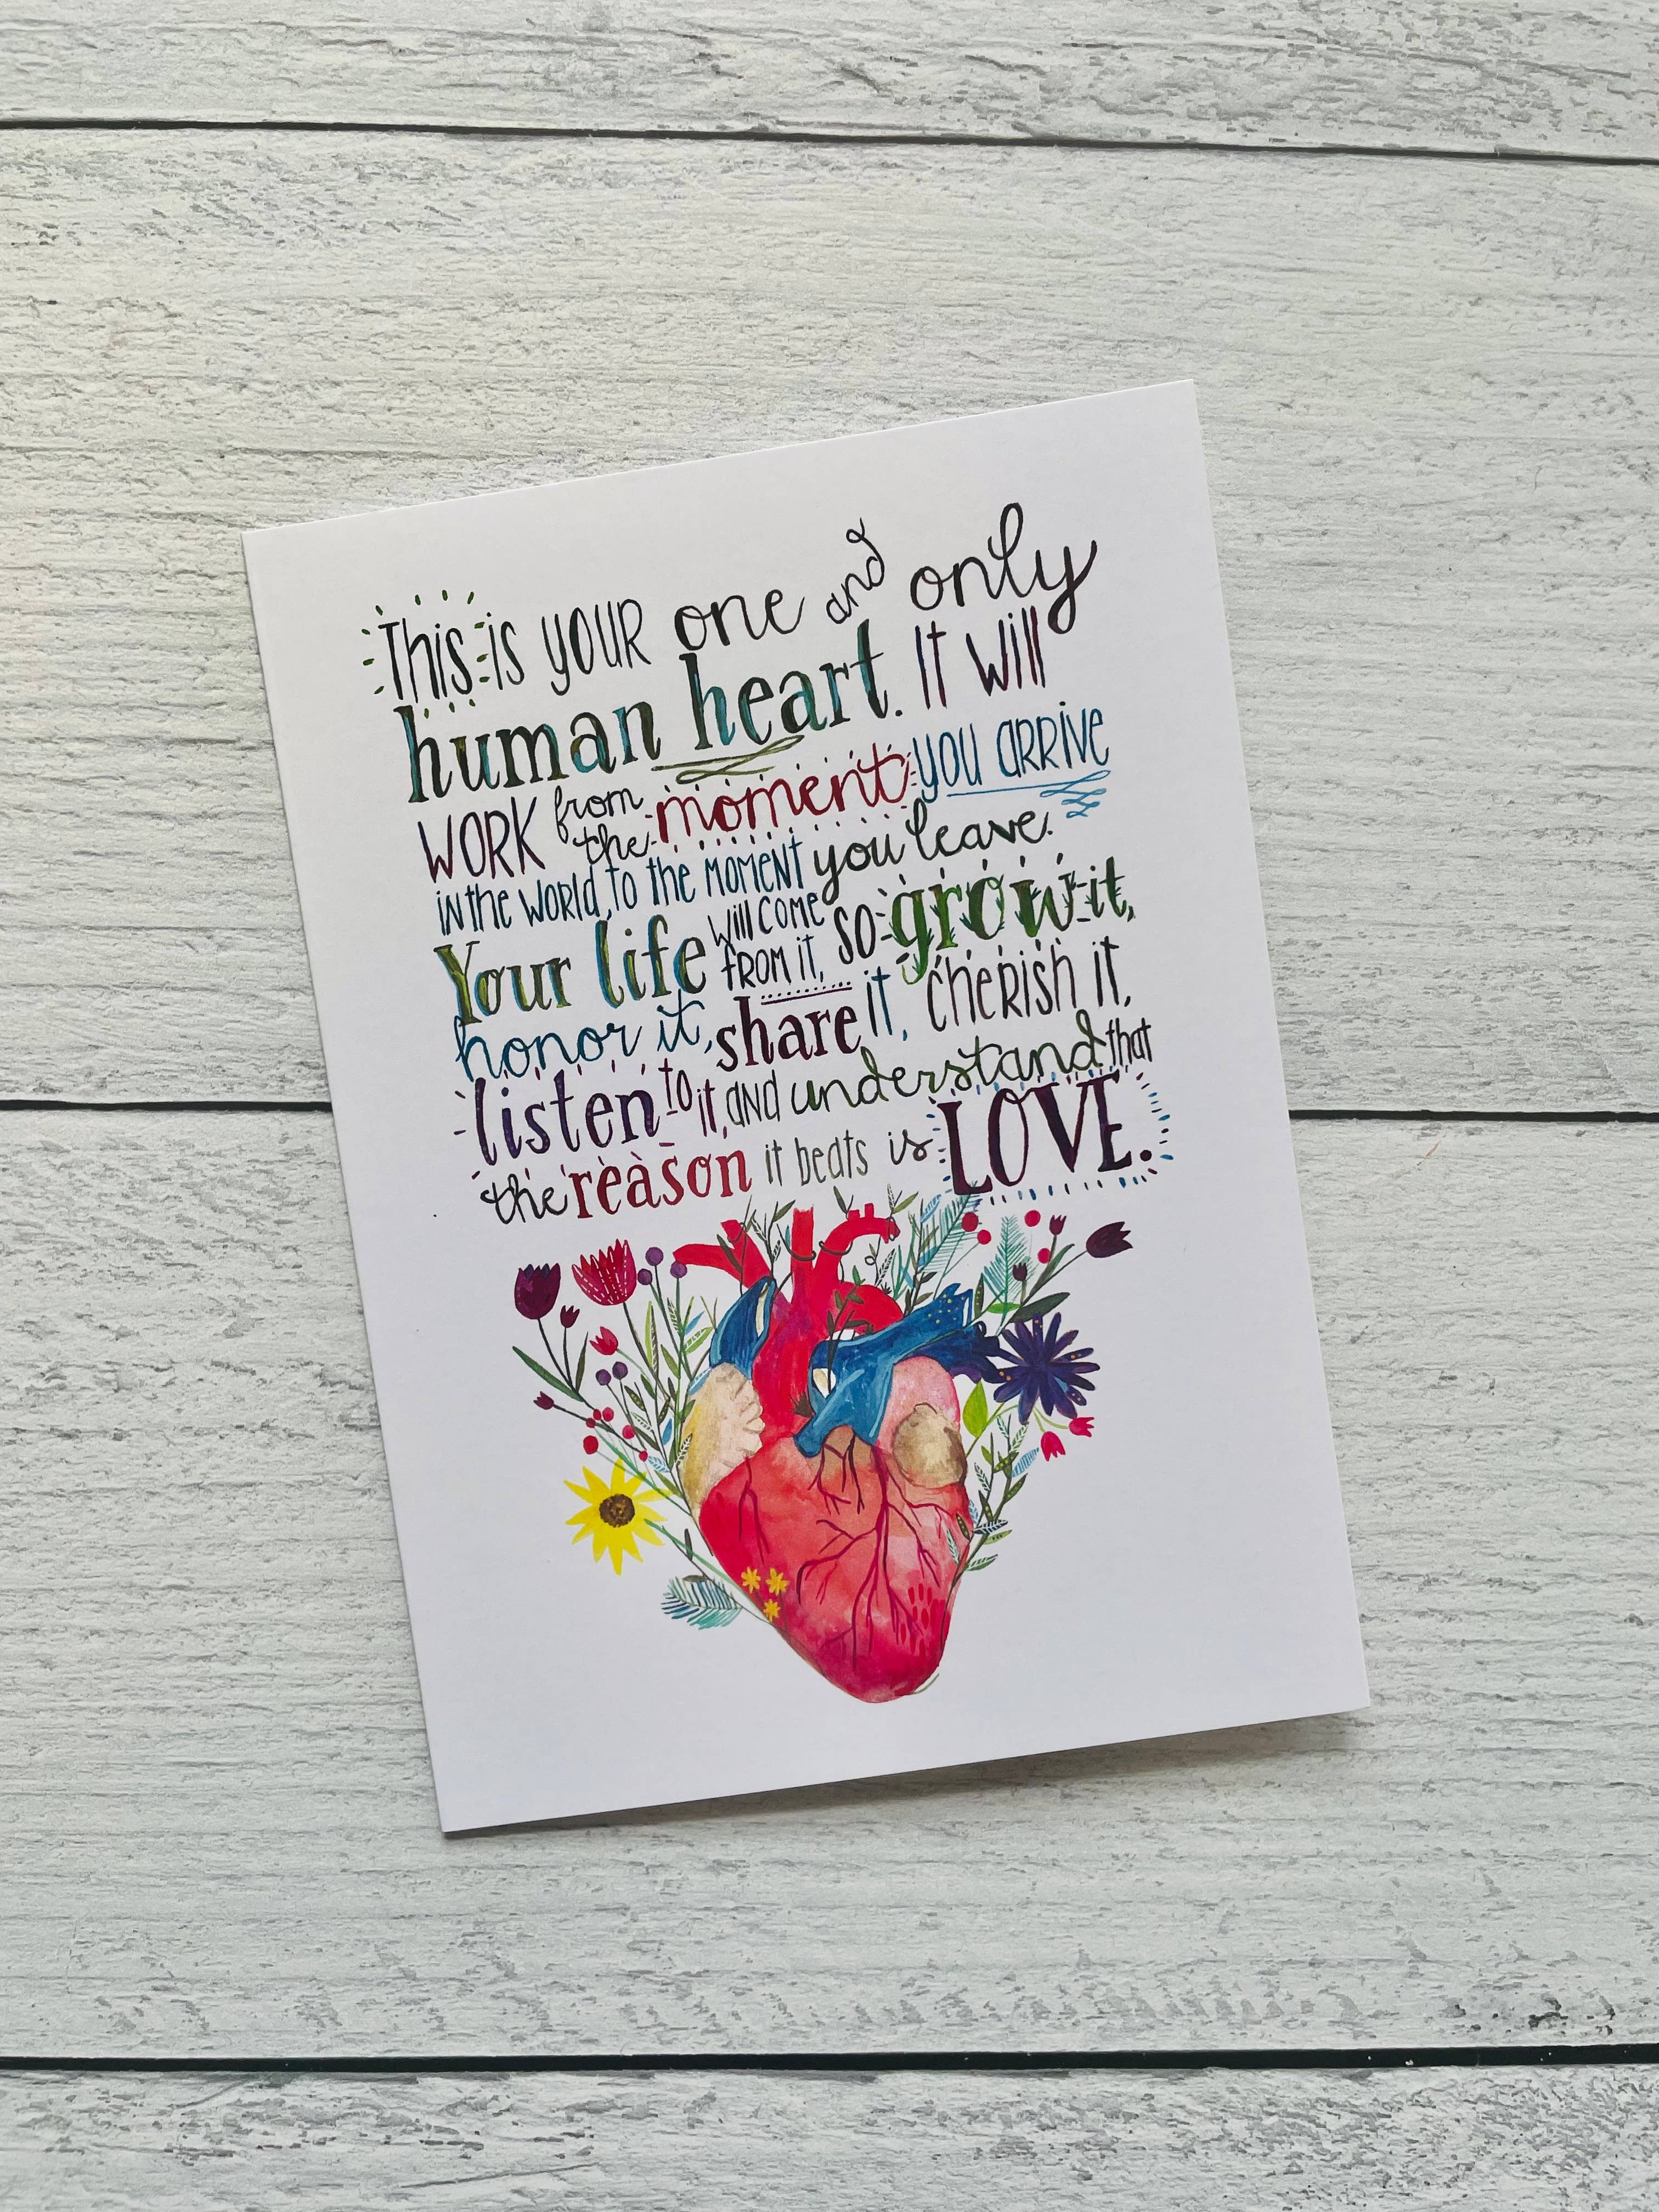 This is YOUR one and only
human heart. It will
WORK from the moment you ARRIVE
in the WORLD, to the MOMENT you leave.
Your life will COME FROM it, so grow it,
honor it, share it, CHERISH it,
listen to it, AND understand that
the reason it beats is LOVE.